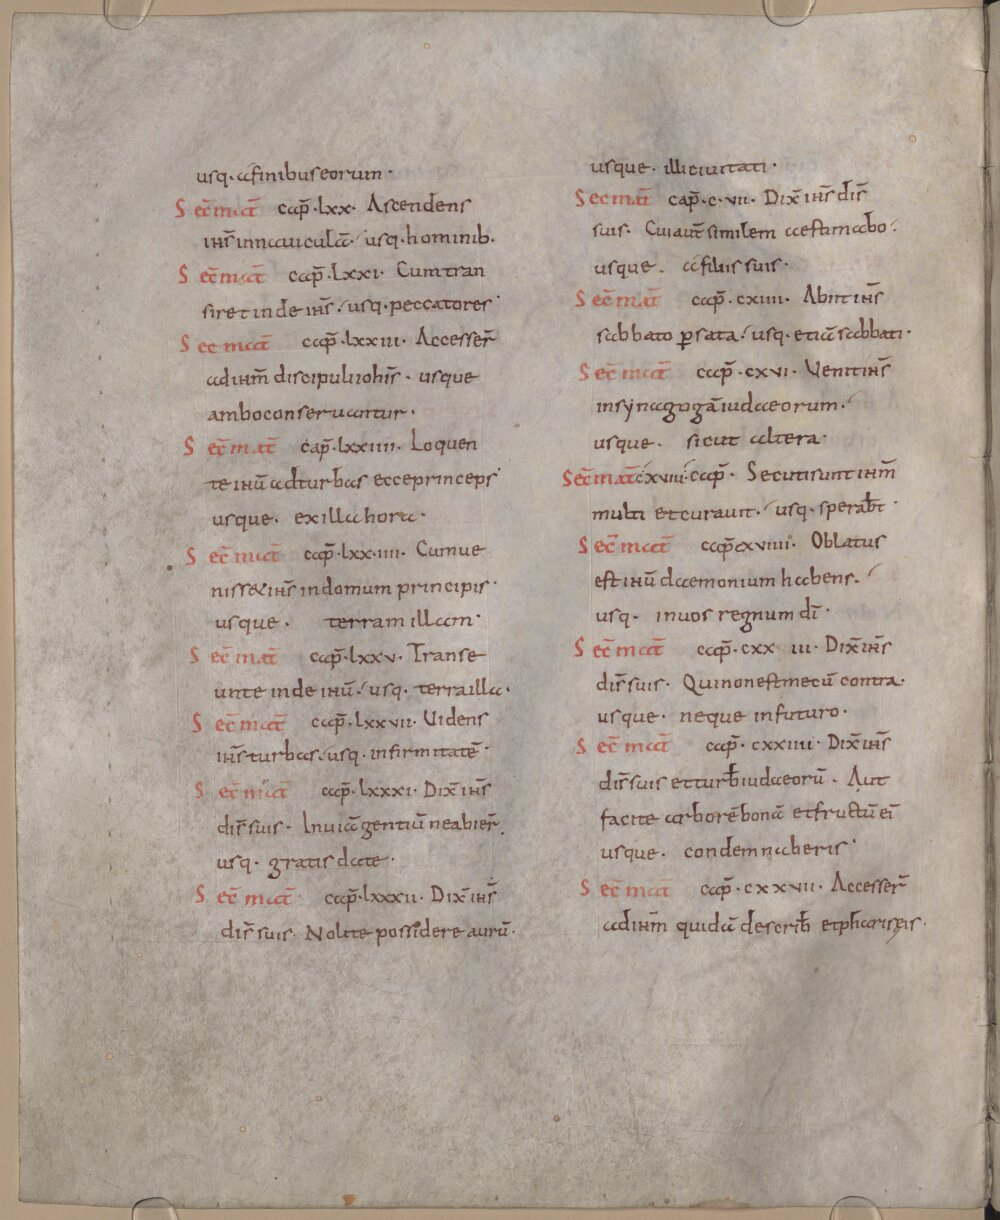 usq· a finibus eorum·
Sec̄ mat̄ cap̄·lxx· Ascendens
ih̄s in nauiculā· usq· hominib·
Sec̄ mat̄ cap̄·lxxi· Cum tran
siret inde ih̄s· usq· peccatores·
Sec mat̄ cap̄·lxxiii· Accesser̄
ad ih̄m discipuli ioh̄is· usque
ambo conseruantur·
Sec̄ mat̄ cap̄·lxxiiii· Loquen
te ih̄ū ad turbas ecce princeps·
usque· ex illa hora·
Sec̄ mat̄ cap̄·lxx·iiii· Cum ue
nisset ih̄s in domum principis·
usque· terram illam·
Sec̄ mat̄ cap̄·lxxv· Transe
unte inde ih̄ū· usq· terra illa·
Sec̄ mat̄ cap̄·lxxvii· Uidens
ih̄s turbas· usq· infirmitatē·
Sec̄ mat̄ cap̄·lxxxi· Dix̄ ih̄s
dis̄ suis· In uiā gentiū ne abier̄
usq· gratis date·
Sec̄ mat̄ cap̄·lxxxii· Dix̄ ih̄s
dis̄ suis· Nolite possidere aurū·
usque· illi ciuitati·
Sec mat̄ cap̄·c·vii· Dix̄ ih̄s dīs
suis· Cui aut̄ similem aestimabo·
usque· a filiis suis·
Sec̄ mat̄ cap̄·cxiiii· Abiit ih̄s
sabbato p̱ sata· usq· etiā sabbati·
Sec̄ mat̄ cap̄·cxvi· Uenit ih̄s
in synagogā iudaeorum·
usque· sicut altera·
Sec̄ mat̄ cxviii· cap̄· Secuti sunt ih̄m
multi et curauit· usq· sperab̄t·
Sec̄ mat̄ cap̄ cxviiii· Oblatus
est ih̄ū daemonium habens·
usq· in uos regnum dī·
Sec̄ mat̄ cap̄·cxx iii· Dix̄ ih̄s
dis̄ suis· Qui non est mecū contra·
usque· neque in futuro·
Sec̄ mat̄ cap̄·cxxiiii· Dix̄ ih̄s
dis̄ suis et turb̄ iudaeorū· Aut
facite arborē bonā et fructū eī
usque· condemnaberis·
Sec̄ mat̄ cap̄·cxxvii· Accesser̄
ad ih̄m quidā de scrib̄ et pharisęis·